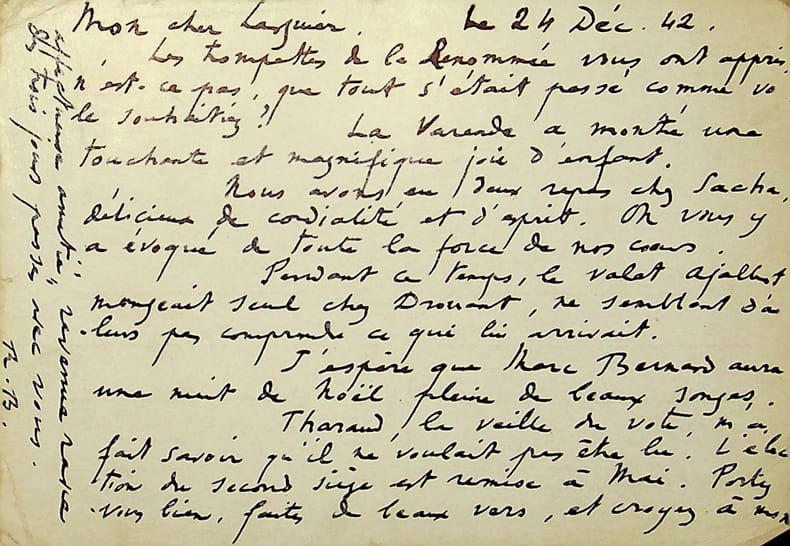 Mon cher Larguier. Le 24 Déc. 42.
Les trompettes de la Renommée vous ont appris,
n'est-ce pas, que tout s'était passé comme vo
le souhaitiez ?
La Varende a montré une
touchante et magnifique joie d'enfant.
Nous avons eu deux repas chez Sacha,
délicieux de cordialité et d'esprit. On vous y
a évoqué de toute la force de nos cœurs.
Pendant ce temps, le valet Ajalbert
mangeait seul chez Drouant, ne semblant d'a
leurs pas comprendre ce qui lui arrivait.
J'espère que Marc Bernard aura
une nuit de Noël pleine de beaux songes.
Tharaud, la veille du vote, m'a
fait savoir qu'il ne voulait pas être lu. L'élec
tion du second siège est remise à Mai. Portez
vous bien, faites de beaux vers, et croyez à mon
affectueuse amitié, revenue
des trois jours passés avec vous.
R. B.